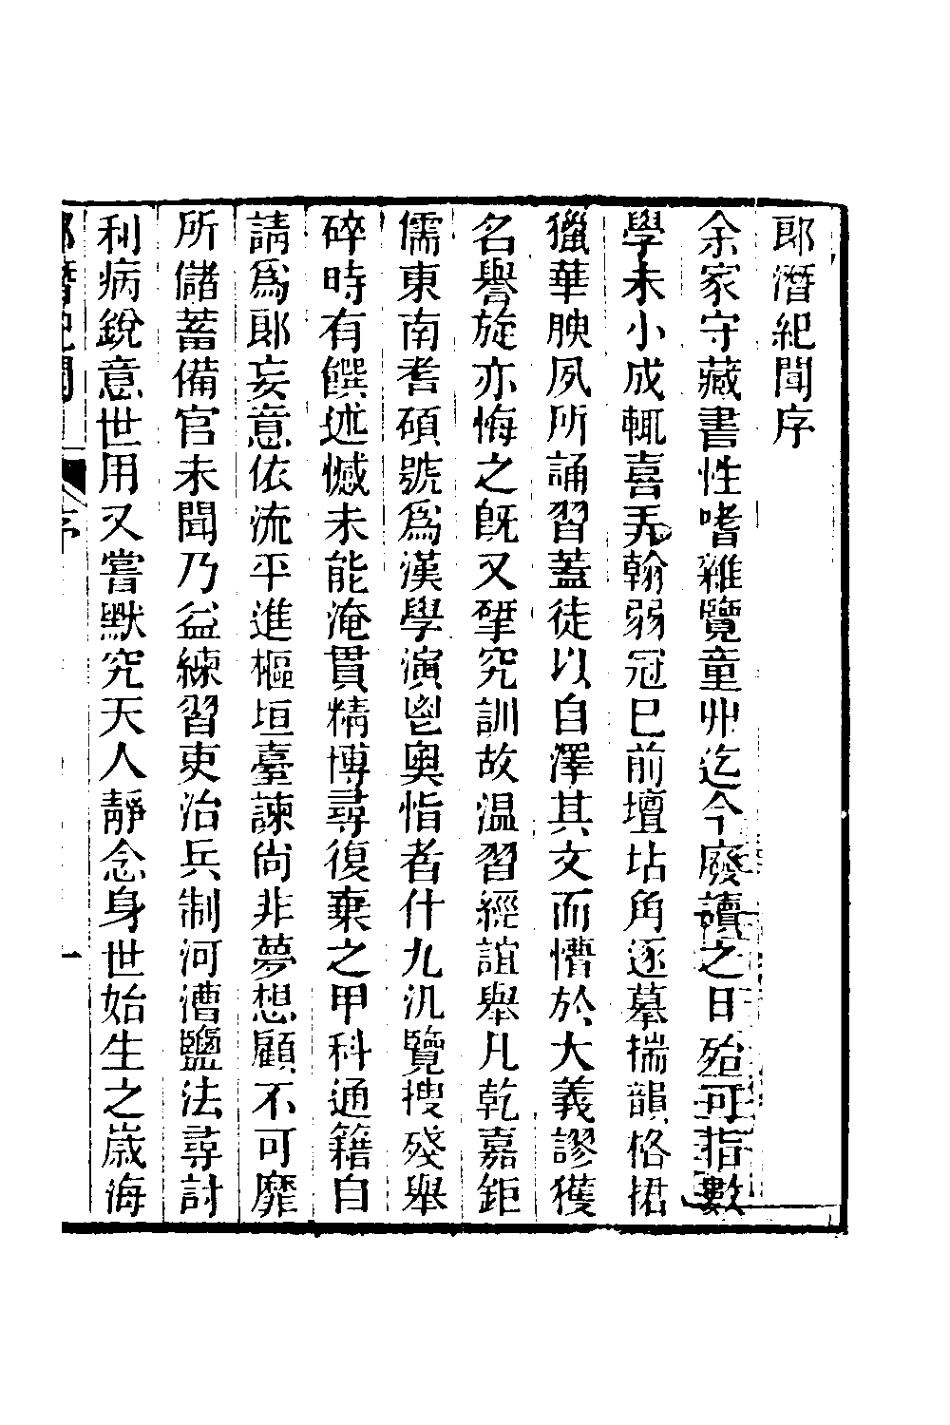 郎潛紀聞序
余家守藏書性嗜雜覽童丱迄今廢讀之日殆可指數
學未小成輒喜弄翰弱冠已前壇坫角逐摹揣韻格捃
獵華腴夙所誦習蓋徒以自澤其文而懵於大義謬獲
名譽旋亦悔之旣又揅究訓故温習經誼舉凡乾嘉鉅
儒東南耆碩號爲漢學演鬯奧恉者什九汎覽搜殘舉
碎時有饌述憾未能淹貫精博尋復棄之甲科通籍自
請爲郎妄意依流平進樞垣臺諫尙非夢想顧不可靡
所儲蓄備官未聞乃益練習吏治兵制河漕鹽法尋討
利病銳意世用又嘗默究天人靜念身世始生之歲海
郎潛紀聞 序 一